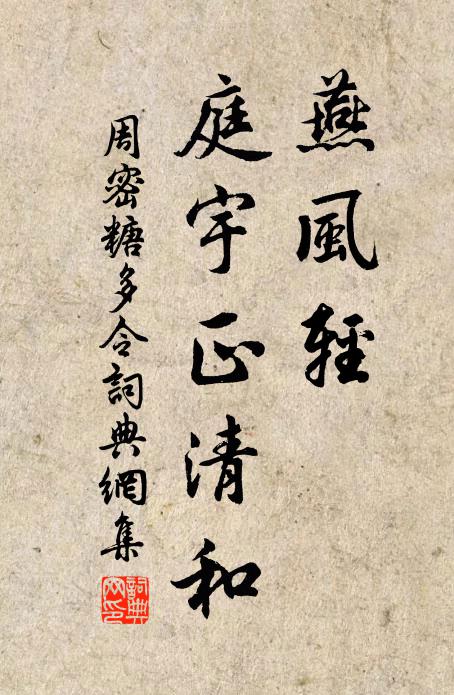 燕風輕
庭宇正清和
周密糖多令詞典網集
詞典網印